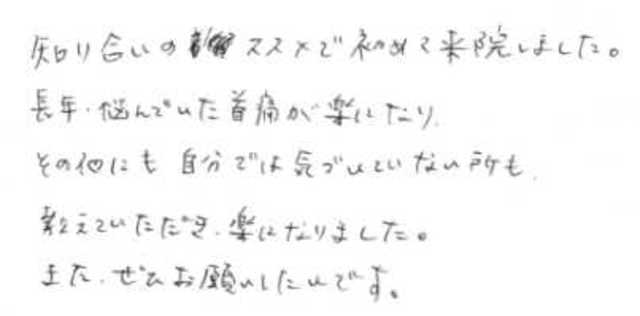 知り合いの ススメで初めて来院しました。
長年、悩んでいた首痛が楽になり、
その他にも自分では気づいていない所も、
教えていただき、楽になりました。
また、ぜひお願いしたいです。